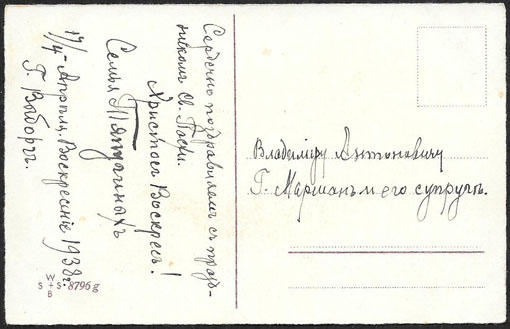 Сердечно поздравляемъ съ празд-
никомъ Св. Пасхи.
Христосъ Воскресъ!
Семья
17/4 - Апрѣль. Воскресніе 1938 г.
Г. Выборгъ.
W
S + S 8796 g
B
Владиміру Антоновичу
Г. и его супругѣ.